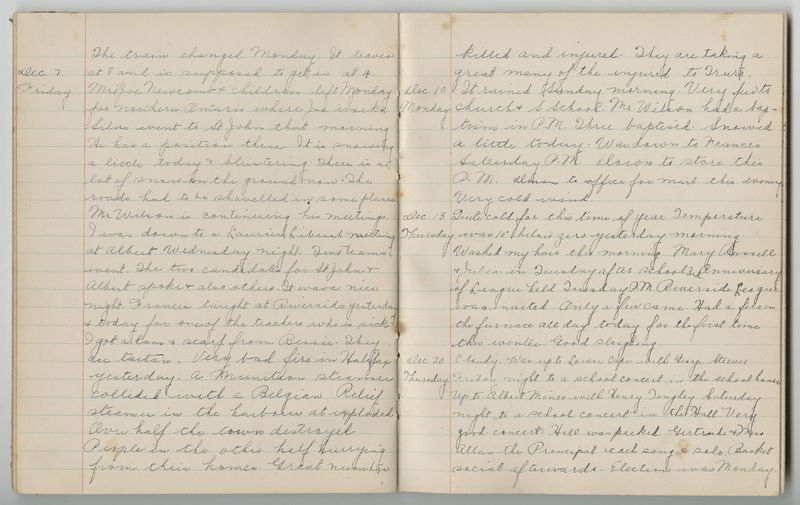 The train changed Monday. It leaves
Dec 7. at 8 and is supposed to get in at 4.
Friday Mrs Joe Newcomb & children left Monday
for northern Ontario where Joe works
Silas went to St John that morning
He has a position there. It is snowing
a little today & blustering. There is a
lot of snow on the ground now. The
roads had to be shovelled in some places
Mr. Wilson is continuing his meetings.
I was down to a Laurier Liberal meeting
at Albert Wednesday night. Two teams
went. The two candidates for St John &
Albert spoke & also others. It was a nice
night. Frances taught at Riverside yesterday
& today for one of the teachers who is sick
I got a tam & scarf from Bessie. They
are tartan. Very bad fire in Halifax
yesterday. A Munition steamer
collided with a Belgian Relief
steamer in the harbour at exploded
Over half the town destroyed
People in the other half hurrying
from their homes. Great number
killed and injured. They are taking a
great many of the injured to Truro.
Dec 10. It rained Sunday morning. Very few to
Monday church & S School. Mr. Wilson had a bap-
tism in P.M. Three baptised. Snowed
a little today. Was down to Frances
Saturday P.M. Down to store this
P.M. down to office for mail this evening
Very cold wind.
Dec 13 Quite cold for this time of year Temperature
Thursday was 18° below zero yesterday morning
Washed my hair this morning. Mary Russell
& in Tuesday after school Anniversary
of League held Tuesday P.M. Riverside League
was invited. Only a few came. Had a fire in
the furnace all day today for the first time
this winter Good sleighing
Dec 20. Cloudy. Was up to Lower Cape with Geo Steeves
Thursday Friday night to a school concert in the school house
Up to Albert Mines with Henry Tingley Saturday
night to a school concert in the Hall Very
good concert Hall was packed. Gertrude & Miss
Allan the Principal each sang a solo, Basket
social afterwards. Election was Monday